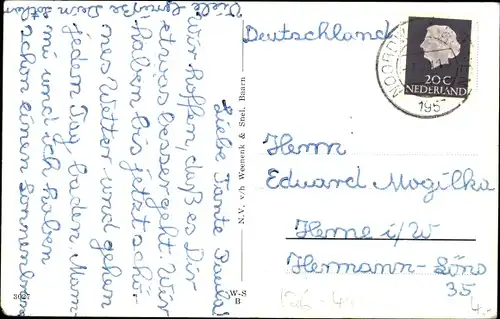 Liebe Tante Paula!
Wir hoffen, daß es Dir
etwas besser geht. Wir
haben bis jetzt schö-
nes Wetter und gehen
jeden Tag baden. Mam-
mi und ich haben
schon einen Sonnenbrand
Viele Grüße Dein
N.V. v/h Weenenk & Snel, Baarn
W-S
B
3047
Deutschland
NOORDW
195
20 C
NEDERLAND
Herrn
Eduard Mogilka
Herne i/W
Hermann-Löns
35
4.